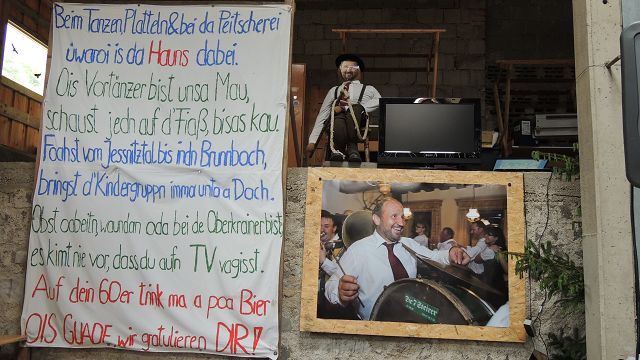 Beim Tanzen, Platteln & bei da Peitscherei
üwaroi is da Hauns dabei.
Ois Vortänzer bist unsa Mau,
schaust jedn auf d'Fiaß, bis as kau.
Foahst vom Jessnitztal bis indn Brunnboch,
bringst d'Kindergruppn imma unta a Doch.
Obst oabeitn, waundan oda bei de Oberkrainer bist
es kimt nie vor, dass du aufn TV vagisst.
Auf dein 60er trink ma a poa Bier
OIS GUADE, wir gratulieren DIR!